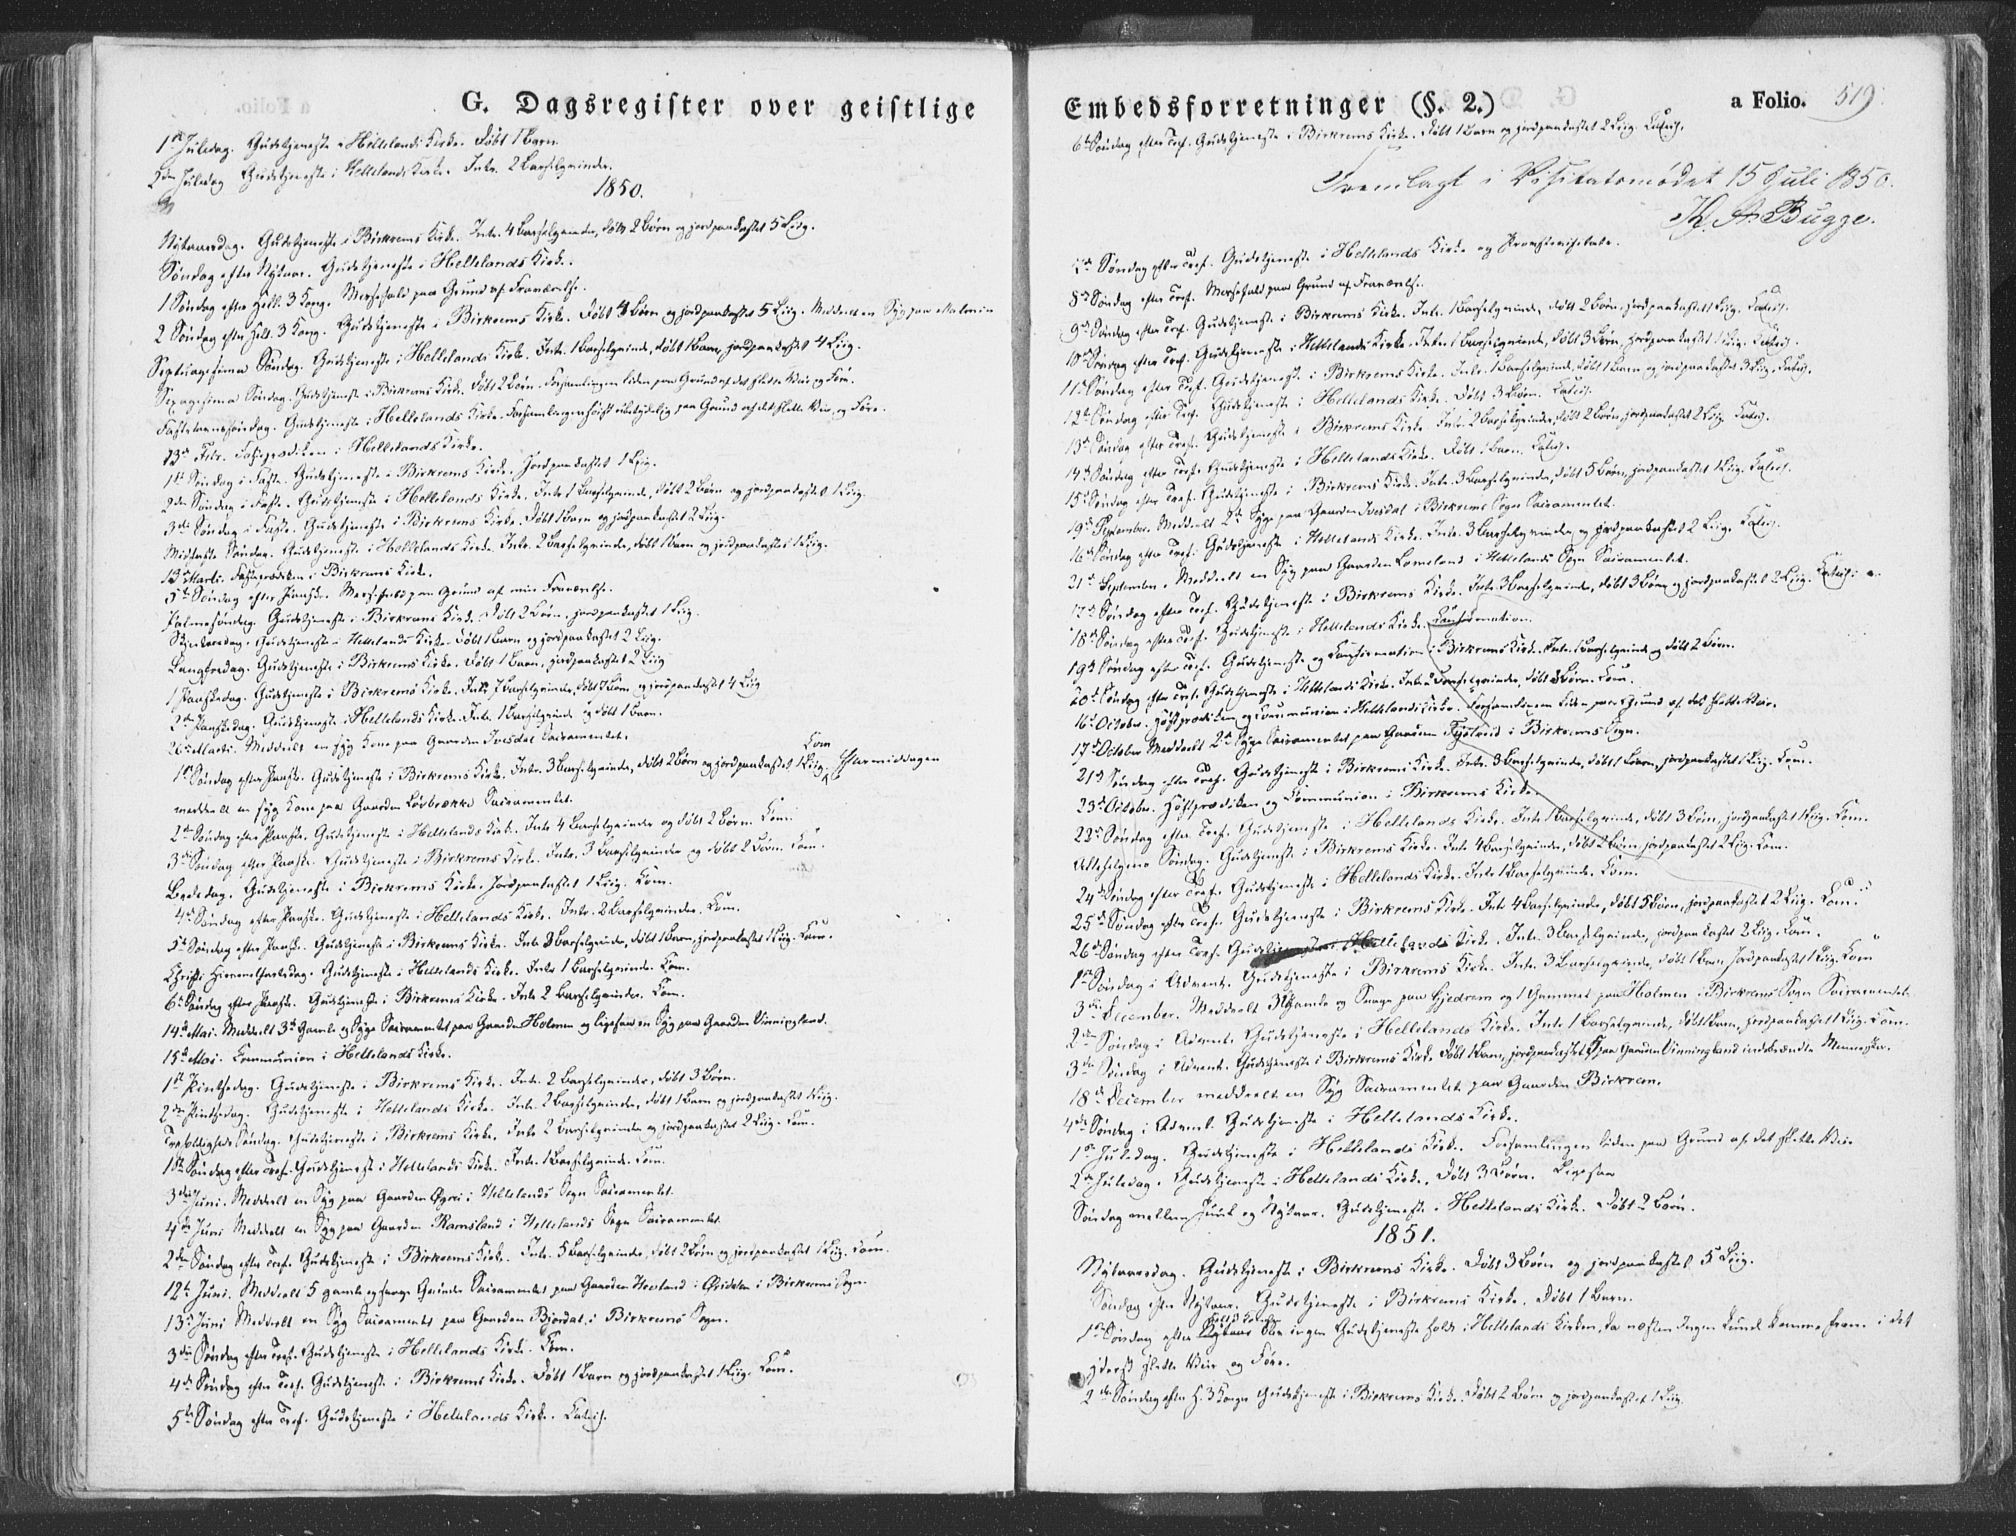 G. Dagsregister over geistlige
1ste Juledag. Gudstjeneste i Hellelands Kirke. Døbt 1 Barn.
2den Juledag Gudstjeneste i Hellelands Kirke. Intr. 2 Barselqvinder.
1850.
Nytaarsdag. Gudstjeneste i Birkrems Kirke. Intr. 4 Barselqvinder, døbt 2 Børn og jordpaakastet 5 Liig.
Søndag efter Nytaar. Gudstjeneste i Hellelands Kirke.
1 Søndag efter Hell. 3 Kong. Messefald paa Grund af Fraværelse.
2 Søndag efter Hell. 3 Kong. Gudstjeneste i Birkrems Kirke. Døbt 4 Børn og jordpaakastet 5 Liig. Meddeelt en Syg paa
Septuagesima Søndag. Gudstjeneste i Hellelands Kirke. Intr. 1 Barselqvinde, døbt 1 Barn, jordpaakastet 4 Liig.
Sexagesima Søndag. Gudstjeneste i Birkrems Kirke. Døbt 2 Børn. Forsamlingen liden paa Grund af det slette Veir og Føre.
Fastelavnssøndag. Gudstjeneste i Hellelands Kirke. Forsamlingen høist ubetydelig paa Grund af det slette Veir og Føre.
13de Febr. Fasteprædiken i Hellelands Kirke.
1ste Søndag i Faste. Gudstjeneste i Birkrems Kirke. Jordpaakastet 1 Liig.
2den Søndag i Faste. Gudstjeneste i Hellelands Kirke. Intr. 1 Barselqvinde, døbt 2 Børn og jordpaakastet 1 Liig.
3die Søndag i Faste. Gudstjeneste i Birkrems Kirke. Døbt 1 Barn og jordpaakastet 2 Liig.
Midfaste Søndag. Gudstjeneste i Hellelands Kirke. Intr. 2 Barselqvinder, døbt 1 Barn og jordpaakastet 1 Liig.
13de Marts. Fasteprædiken i Birkrems Kirke.
5te Søndag Messefald paa Grund af min Fraværelse.
Palmesøndag. Gudstjeneste i Birkrems Kirke. Døbt 2 Børn, jordpaakastet 1 Liig.
Skjertorsdag. Gudstjeneste i Hellelands Kirke. Døbt 1 Barn og jordpaakastet 2 Liig.
Langfredag. Gudstjeneste i Birkrems Kirke. Døbt 1 Barn, jordpaakastet 2 Liig
1 Paaskedag. Gudstjeneste i Birkrems Kirke. Intr. 7 Barselqvinder, døbt 7 Børn og jordpaakastet 4 Liig
2den Paaskedag. Gudstjeneste i Hellelands Kirke. Intr. 1 Barselqvinde og døbt 1 Barn.
26de Marts. Meddeelt en syg Kone paa Gaarden Ivesdal Sacramentet.
1ste Søndag efter Paaske. Gudstjeneste i Birkrems Kirke. Intr. 3 Barselqvinder, døbt 2 Børn og jordpaakastet 1 Liig. Kom Eftermiddagen
meddeelt en syg Kone paa Gaarden Løvbrække Sacramentet.
2den Søndag efter Paaske. Gudstjeneste i Hellelands Kirke. Intr. 4 Barselqvinder og døbt 2 Børn. Kom.
3die Søndag efter Paaske. Gudstjeneste i Birkrems Kirke. Intr. 3 Barselqvinder og døbt 2 Børn. Kom.
Bededag. Gudstjeneste i Birkrems Kirke. Jordpaakastet 1 Liig. Kom.
4de Søndag efter Paaske. Gudstjeneste i Hellelands Kirke. Intr. 2 Barselqvinder. Kom.
5te Søndag efter Paaske. Gudstjeneste i Birkrems Kirke. Intr. 3 Barselqvinder, døbt 1 Barn, jordpaakastet 1 Liig. Kom.
Christi Himmelfartsdag. Gudstjeneste i Hellelands Kirke. Intr. 1 Barselqvinde. Kom.
6te Søndag efter Paaske. Gudstjeneste i Birkrems Kirke. Intr. 2 Barselqvinder. Kom.
14de Mai. Meddeelt 3de Gamle og Syge Sacramentet paa Gaarden Holmen og ligesaa en Syg paa Gaarden Vinningland.
15de Mai. Communion i Hellelands Kirke.
1ste Pintsedag. Gudstjeneste i Birkrems Kirke. Intr. 2 Barselqvinder, døbt 3 Børn.
2den Pintsedag. Gudstjeneste i Hellelands Kirke. Intr. 2 Barselqvinder, døbt 1 Barn og jordpaakastet 1 Liig.
Trefoldigheds Søndag. Gudstjeneste i Birkrems Kirke. Intr. 2 Barselqvinder og jordpaakastet 2 Liig. Kom.
1ste Søndag efter Tref. Gudstjeneste i Hellelands Kirke. Intr. 1 Barselqvinde. Kom.
3die Juni. Meddeelt en Syg paa Gaarden i Hellelands Sogn Sacramentet.
4de Juni Meddeelt en Syg paa Gaarden Ramsland i Hellelands Sogn Sacramentet.
2den Søndag efter Tref. Gudstjeneste i Birkrems Kirke. Intr. 5 Barselqvinder, døbt 2 Børn og jordpaakastet 1 Liig. Kom.
12te Juni. Meddeelt 5 gamle og svage Qvinder Sacramentet paa Gaarden i Birkrems Sogn.
13de Juni Meddeelt en Syg Sacramentet paa Gaarden Bjordal i Birkrems Sogn.
3die Søndag efter Tref. Gudstjeneste i Hellelands Kirke. Kom.
4de Søndag efter Tref. Gudstjeneste i Birkrems Kirke. Døbt 1 Barn og jordpaakastet 1 Liig. Kom.
5te Søndag efter Tref. Gudstjeneste i Hellelands Kirke. Catech.
Embedsforretninger (§. 2.) a Folio. 519.
6te Søndag efter Tref. Gudstjeneste i Birkrems Kirke. Døbt 1 Barn og jordpaakastet 2 Liig. Catech.
Fremlagt i Visitatsmødet 15 Juli 1850.
Bugge.
7de Søndag efter Tref. Gudstjeneste i Hellelands Kirke og
8de Søndag efter Tref. Messefald paa Grund af Fraværelse.
9de Søndag efter Tref. Gudstjeneste i Birkrems Kirke. Intr. 1 Barselqvinde, døbt 2 Børn, jordpaakastet 1 Liig. Catech.
10de Søndag efter Tref. Gudstjeneste i Hellelands Kirke. Intr. 1 Barselqvinde, døbt 3 Børn, jordpaakastet 1 Liig. Catech.
11te Søndag efter Tref. Gudstjeneste i Birkrems Kirke. Intr. 1 Barselqvinde, døbt 1 Barn og jordpaakastet 3 Liig. Catech.
12te Søndag efter Tref. Gudstjeneste i Hellelands Kirke. Døbt 3 Børn. Catech.
13de Søndag efter Tref. Gudstjeneste i Birkrems Kirke. Intr. 2 Barselqvinder, døbt 2 Børn, jordpaakastet 2 Liig. Catech.
14de Søndag efter Tref. Gudstjeneste i Hellelands Kirke. Døbt 1 Barn. Catech.
15de Søndag efter Tref. Gudstjeneste i Birkrems Kirke. Intr. 3 Barselqvinder, døbt 5 Børn, jordpaakastet 1 Liig. Catech.
19de September. Meddeelt 2de Syge paa Gaarden Ivesdal i Birkrems Sogn Sacramentet.
16de Søndag efter Tref. Gudstjeneste i Hellelands Kirke. Intr. 3 Barselqvinder og jordpaakastet 2 Liig. Catech.
21de September. Meddeelt en Syg paa Gaarden Lomeland i Hellelands Sogn Sacramentet.
17de Søndag efter Tref. Gudstjeneste i Birkrems Kirke. Intr. 3 Barselqvinder, døbt 3 Børn og jordpaakastet 2 Liig. Catech.
18de Søndag efter Tref. Gudstjeneste i Hellelands Kirke. Confirmation.
19de Søndag efter Tref. Gudstjeneste og Confirmation i Birkrems Kirke. Intr. 1 Barselqvinde og døbt 2 Børn.
20de Søndag efter Tref. Gudstjeneste i Hellelands Kirke. Intr. 2 Barselqvinder, døbt 3 Børn. Kom.
16de October. Høstprædiken og Communion i Hellelands Kirke. Forsamlingen liden paa Grund af det slette Veir.
17de October Meddeelt 2de Syge Sacramentet paa Gaarden i Birkrems Sogn.
21de Søndag efter Tref. Gudstjeneste i Birkrems Kirke. Intr. 3 Barselqvinder, døbt 1 Barn, jordpaakastet 1 Liig. Kom.
23de October. Høstprædiken og Communion i Birkrems Kirke.
22de Søndag efter Tref. Gudstjeneste i Hellelands Kirke. Intr. 1 Barselqvinde, døbt 3 Børn, jordpaakastet 1 Liig. Kom.
Allehelgens Søndag. Gudstjeneste i Birkrems Kirke. Intr. 4 Barselqvinder, døbt 2 Børn, jordpaakastet 2 Liig. Kom.
24de Søndag efter Tref. Gudstjeneste i Hellelands Kirke. Intr. 1 Barselqvinde. Kom.
25de Søndag efter Tref. Gudstjeneste i Birkrems Kirke. Intr. 4 Barselqvinder, døbt 5 Børn, jordpaakastet 2 Liig. Kom.
26de Søndag efter Tref. Gudstjeneste i Hellelands Kirke. Intr. 3 Barselqvinder, jordpaakastet 2 Liig. Kom.
1ste Søndag i Advent. Gudstjeneste i Birkrems Kirke. Intr. 3 Barselqvinder, døbt 1 Barn. Jordpaakastet 1 Liig. Kom
3die December. Meddeelt 3 Gamle og Svage paa Gjedrem og 1 Gammel paa Holmen i Birkrems Sogn Sacramentet.
2den Søndag i Advent. Gudstjeneste i Hellelands Kirke. Intr. 1 Barselqvinde, døbt 1 Barn, jordpaakastet 1 Liig. Kom.
3die Søndag i Advent. Gudstjeneste i Birkrems Kirke. Døbt 1 Barn, jordpaakastet 5 paa Gaarden Vinningland indebrændte Mennesker.
18de December meddeelt en Syg Sacramentet paa Gaarden Birkrem.
4de Søndag i Advent. Gudstjeneste i Hellelands Kirke.
1ste Juledag. Gudstjeneste i Hellelands Kirke. Forsamlingen liden paa Grund af det slette Veir
2den Juledag. Gudstjeneste i Hellelands Kirke. Døbt 3 Børn. Ligesaa
Søndag mellem Juul og Nytaar. Gudstjeneste i Hellelands Kirke. Døbt 2 Børn.
1851.
Nytaarsdag. Gudstjeneste i Birkrems Kirke. Døbt 3 Børn og jordpaakastet 5 Liig.
Søndag efter Nytaar. Gudstjeneste i Birkrems Kirke. Døbt 1 Barn.
1ste Søndag efter Hell. 3 Konger ingen Gudstjeneste holdt i Hellelands Kirken, da næsten Ingen kunde komme frem i det
yderst slette Veir og Føre.
2den Søndag efter H. 3 Konger Gudstjeneste i Birkrems Kirke. Døbt 2 Børn og jordpaakastet 1 Liig.